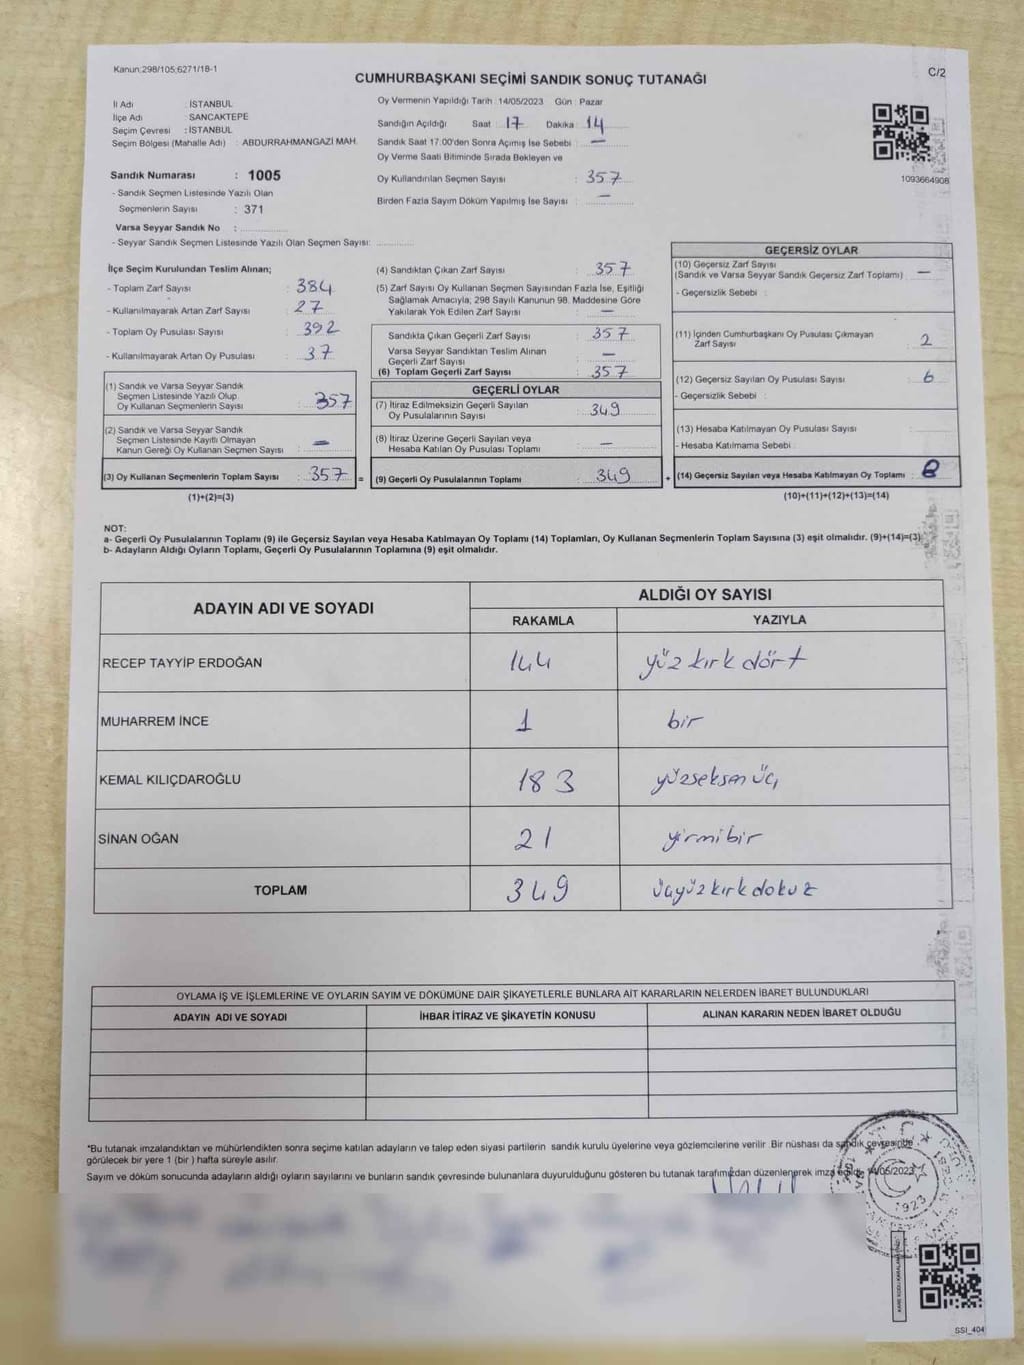 Kanun:298/105;6271/18-1
C/2
CUMHURBAŞKANI SEÇİMİ SANDIK SONUÇ TUTANAĞI
İl Adı : İSTANBUL
İlçe Adı SANCAKTEPE
Seçim Çevresi : İSTANBUL
Seçim Bölgesi (Mahalle Adı) : ABDURRAHMANGAZİ MAH.
Sandık Numarası : 1005
- Sandık Seçmen Listesinde Yazılı Olan
Seçmenlerin Sayısı : 371
Varsa Seyyar Sandık No :
- Seyyar Sandık Seçmen Listesinde Yazılı Olan Seçmen Sayısı:
Oy Vermenin Yapıldığı Tarih : 14/05/2023 Gün : Pazar
Sandığın Açıldığı Saat : 17 Dakika : 14
Sandık Saat 17.00'den Sonra Açımış İse Sebebi : —
Oy Verme Saati Bitiminde Sırada Bekleyen ve
Oy Kullandırılan Seçmen Sayısı : 357
Birden Fazla Sayım Döküm Yapılmış İse Sayısı : —
1093664908
İlçe Seçim Kurulundan Teslim Alınan;
- Toplam Zarf Sayısı : 384
- Kullanılmayarak Artan Zarf Sayısı : 27
- Toplam Oy Pusulası Sayısı : 392
- Kullanılmayarak Artan Oy Pusulası : 37
(1) Sandık ve Varsa Seyyar Sandık
Seçmen Listesinde Yazılı Olup
Oy Kullanan Seçmenlerin Sayısı : 357
(2) Sandık ve Varsa Seyyar Sandık
Seçmen Listesinde Kayıtlı Olmayan
Kanun Gereği Oy Kullanan Seçmen Sayısı : —
(3) Oy Kullanan Seçmenlerin Toplam Sayısı : 357 =
(1)+(2)=(3)
(4) Sandıktan Çıkan Zarf Sayısı : 357
(5) Zarf Sayısı Oy Kullanan Seçmen Sayısından Fazla İse, Eşitliği
Sağlamak Amacıyla; 298 Sayılı Kanunun 98. Maddesine Göre
Yakılarak Yok Edilen Zarf Sayısı : —
Sandıkta Çıkan Geçerli Zarf Sayısı : 357
Varsa Seyyar Sandıktan Teslim Alınan
Geçerli Zarf Sayısı : —
(6) Toplam Geçerli Zarf Sayısı : 357
GEÇERLİ OYLAR
(7) İtiraz Edilmeksizin Geçerli Sayılan
Oy Pusulalarının Sayısı : 349
(8) İtiraz Üzerine Geçerli Sayılan veya
Hesaba Katılan Oy Pusulası Toplamı : —
(9) Geçerli Oy Pusulalarının Toplamı : 349 +
GEÇERSİZ OYLAR
(10) Geçersiz Zarf Sayısı
(Sandık ve Varsa Seyyar Sandık Geçersiz Zarf Toplamı) : —
- Geçersizlik Sebebi :
(11) İçinden Cumhurbaşkanı Oy Pusulası Çıkmayan
Zarf Sayısı : 2
(12) Geçersiz Sayılan Oy Pusulası Sayısı : 6
- Geçersizlik Sebebi :
(13) Hesaba Katılmayan Oy Pusulası Sayısı :
- Hesaba Katılmama Sebebi :
(14) Geçersiz Sayılan veya Hesaba Katılmayan Oy Toplamı : 8
(10)+(11)+(12)+(13)=(14)
NOT:
a- Geçerli Oy Pusulalarının Toplamı (9) ile Geçersiz Sayılan veya Hesaba Katılmayan Oy Toplamı (14) Toplamları, Oy Kullanan Seçmenlerin Toplam Sayısına (3) eşit olmalıdır. (9)+(14)=(3)
b- Adayların Aldığı Oyların Toplamı, Geçerli Oy Pusulalarının Toplamına (9) eşit olmalıdır.
ADAYIN ADI VE SOYADI ALDIĞI OY SAYISI
RAKAMLA YAZIYLA
RECEP TAYYİP ERDOĞAN 144 yüz kırk dört
MUHARREM İNCE 1 bir
KEMAL KILIÇDAROĞLU 183 yüzseksen üç
SİNAN OĞAN 21 yirmibir
TOPLAM 349 üçyüzkırkdokuz
OYLAMA İŞ VE İŞLEMLERİNE VE OYLARIN SAYIM VE DÖKÜMÜNE DAİR ŞİKAYETLERLE BUNLARA AİT KARARLARIN NELERDEN İBARET BULUNDUKLARI
ADAYIN ADI VE SOYADI İHBAR İTİRAZ VE ŞİKAYETİN KONUSU ALINAN KARARIN NEDEN İBARET OLDUĞU
*Bu tutanak imzalandıktan ve mühürlendikten sonra seçime katılan adayların ve talep eden siyasi partilerin sandık kurulu üyelerine veya gözlemcilerine verilir. Bir nüshası da sandık çevresinde
görülecek bir yere 1 (bir ) hafta süreyle asılır.
Sayım ve döküm sonucunda adayların aldığı oyların sayılarını ve bunların sandık çevresinde bulunanlara duyurulduğunu gösteren bu tutanak tarafımızdan düzenlenerek imza edildi. 14/05/2023
1923
SSI_404